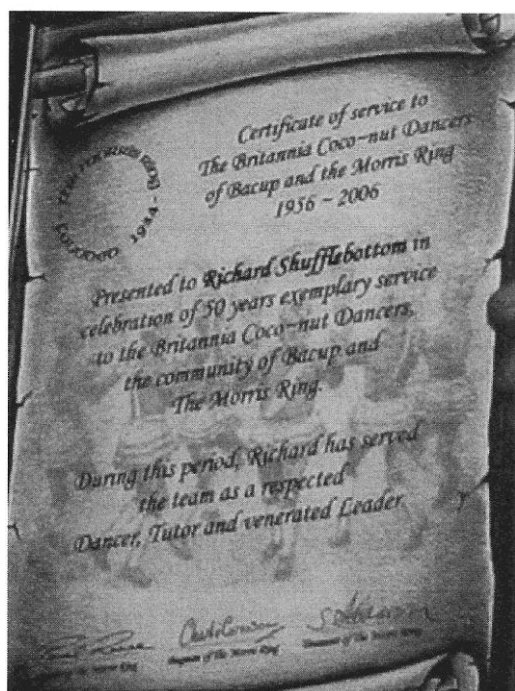 THE MORRIS RING
FOUNDED 1934
Certificate of service to
The Britannia Coco-nut Dancers
of Bacup and the Morris Ring
1956 ~ 2006
Presented to Richard Shufflebottom in
celebration of 50 years exemplary service
to the Britannia Coco-nut Dancers,
the community of Bacup and
The Morris Ring.
During this period, Richard has served
the team as a respected
Dancer, Tutor and venerated Leader
of The Morris Ring
of The Morris Ring